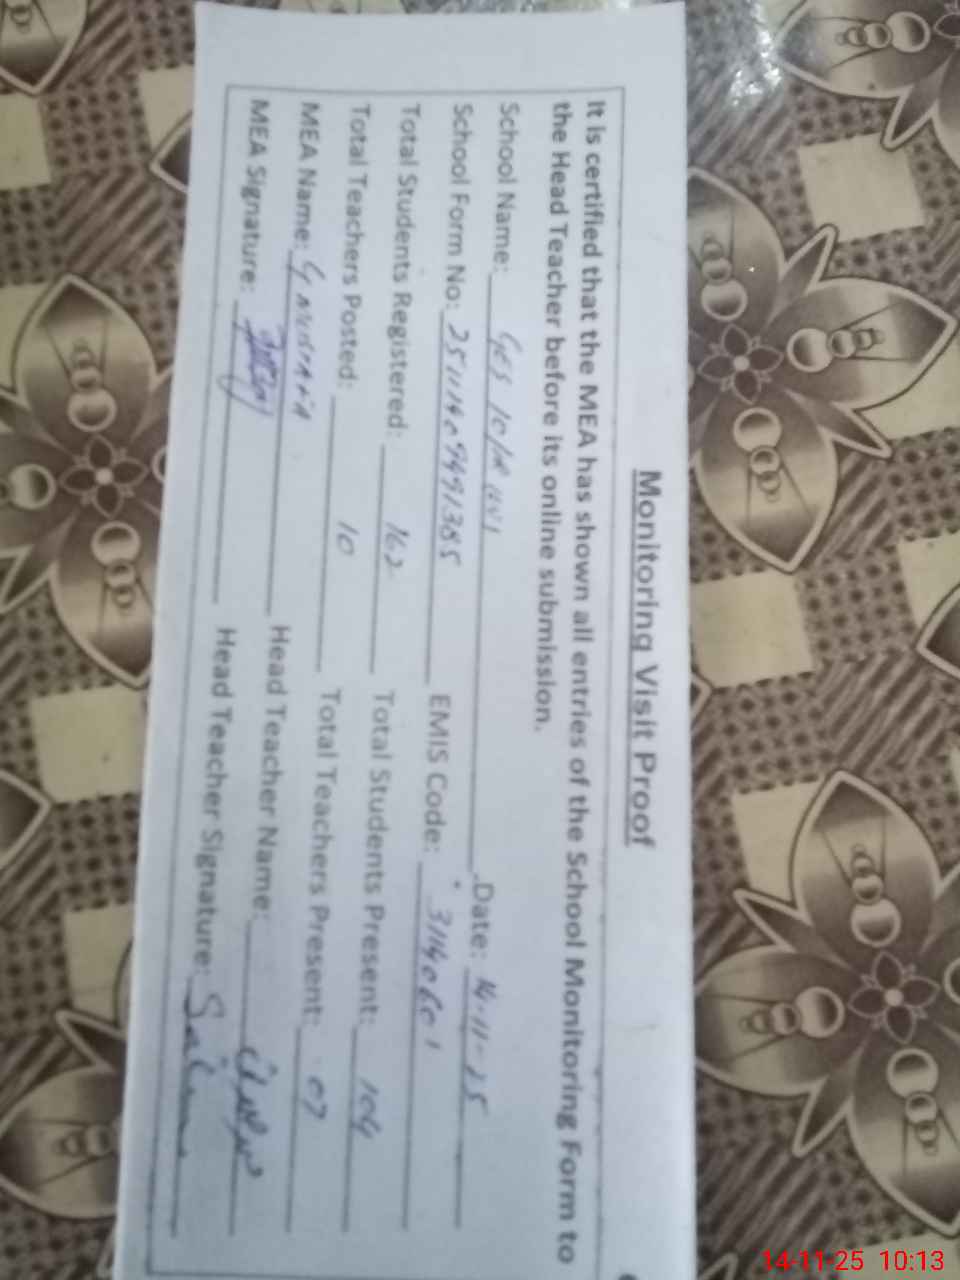 Monitoring Visit Proof
It is certified that the MEA has shown all entries of the School Monitoring Form to
the Head Teacher before its online submission.
School Name: GES 10/R Date: 14-11-25
School Form No: EMIS Code: 31140601
Total Students Registered: 162 Total Students Present: 104
Total Teachers Posted: 10 Total Teachers Present: 07
MEA Name: Head Teacher Name:
MEA Signature: Head Teacher Signature:
14-11-25 10:13